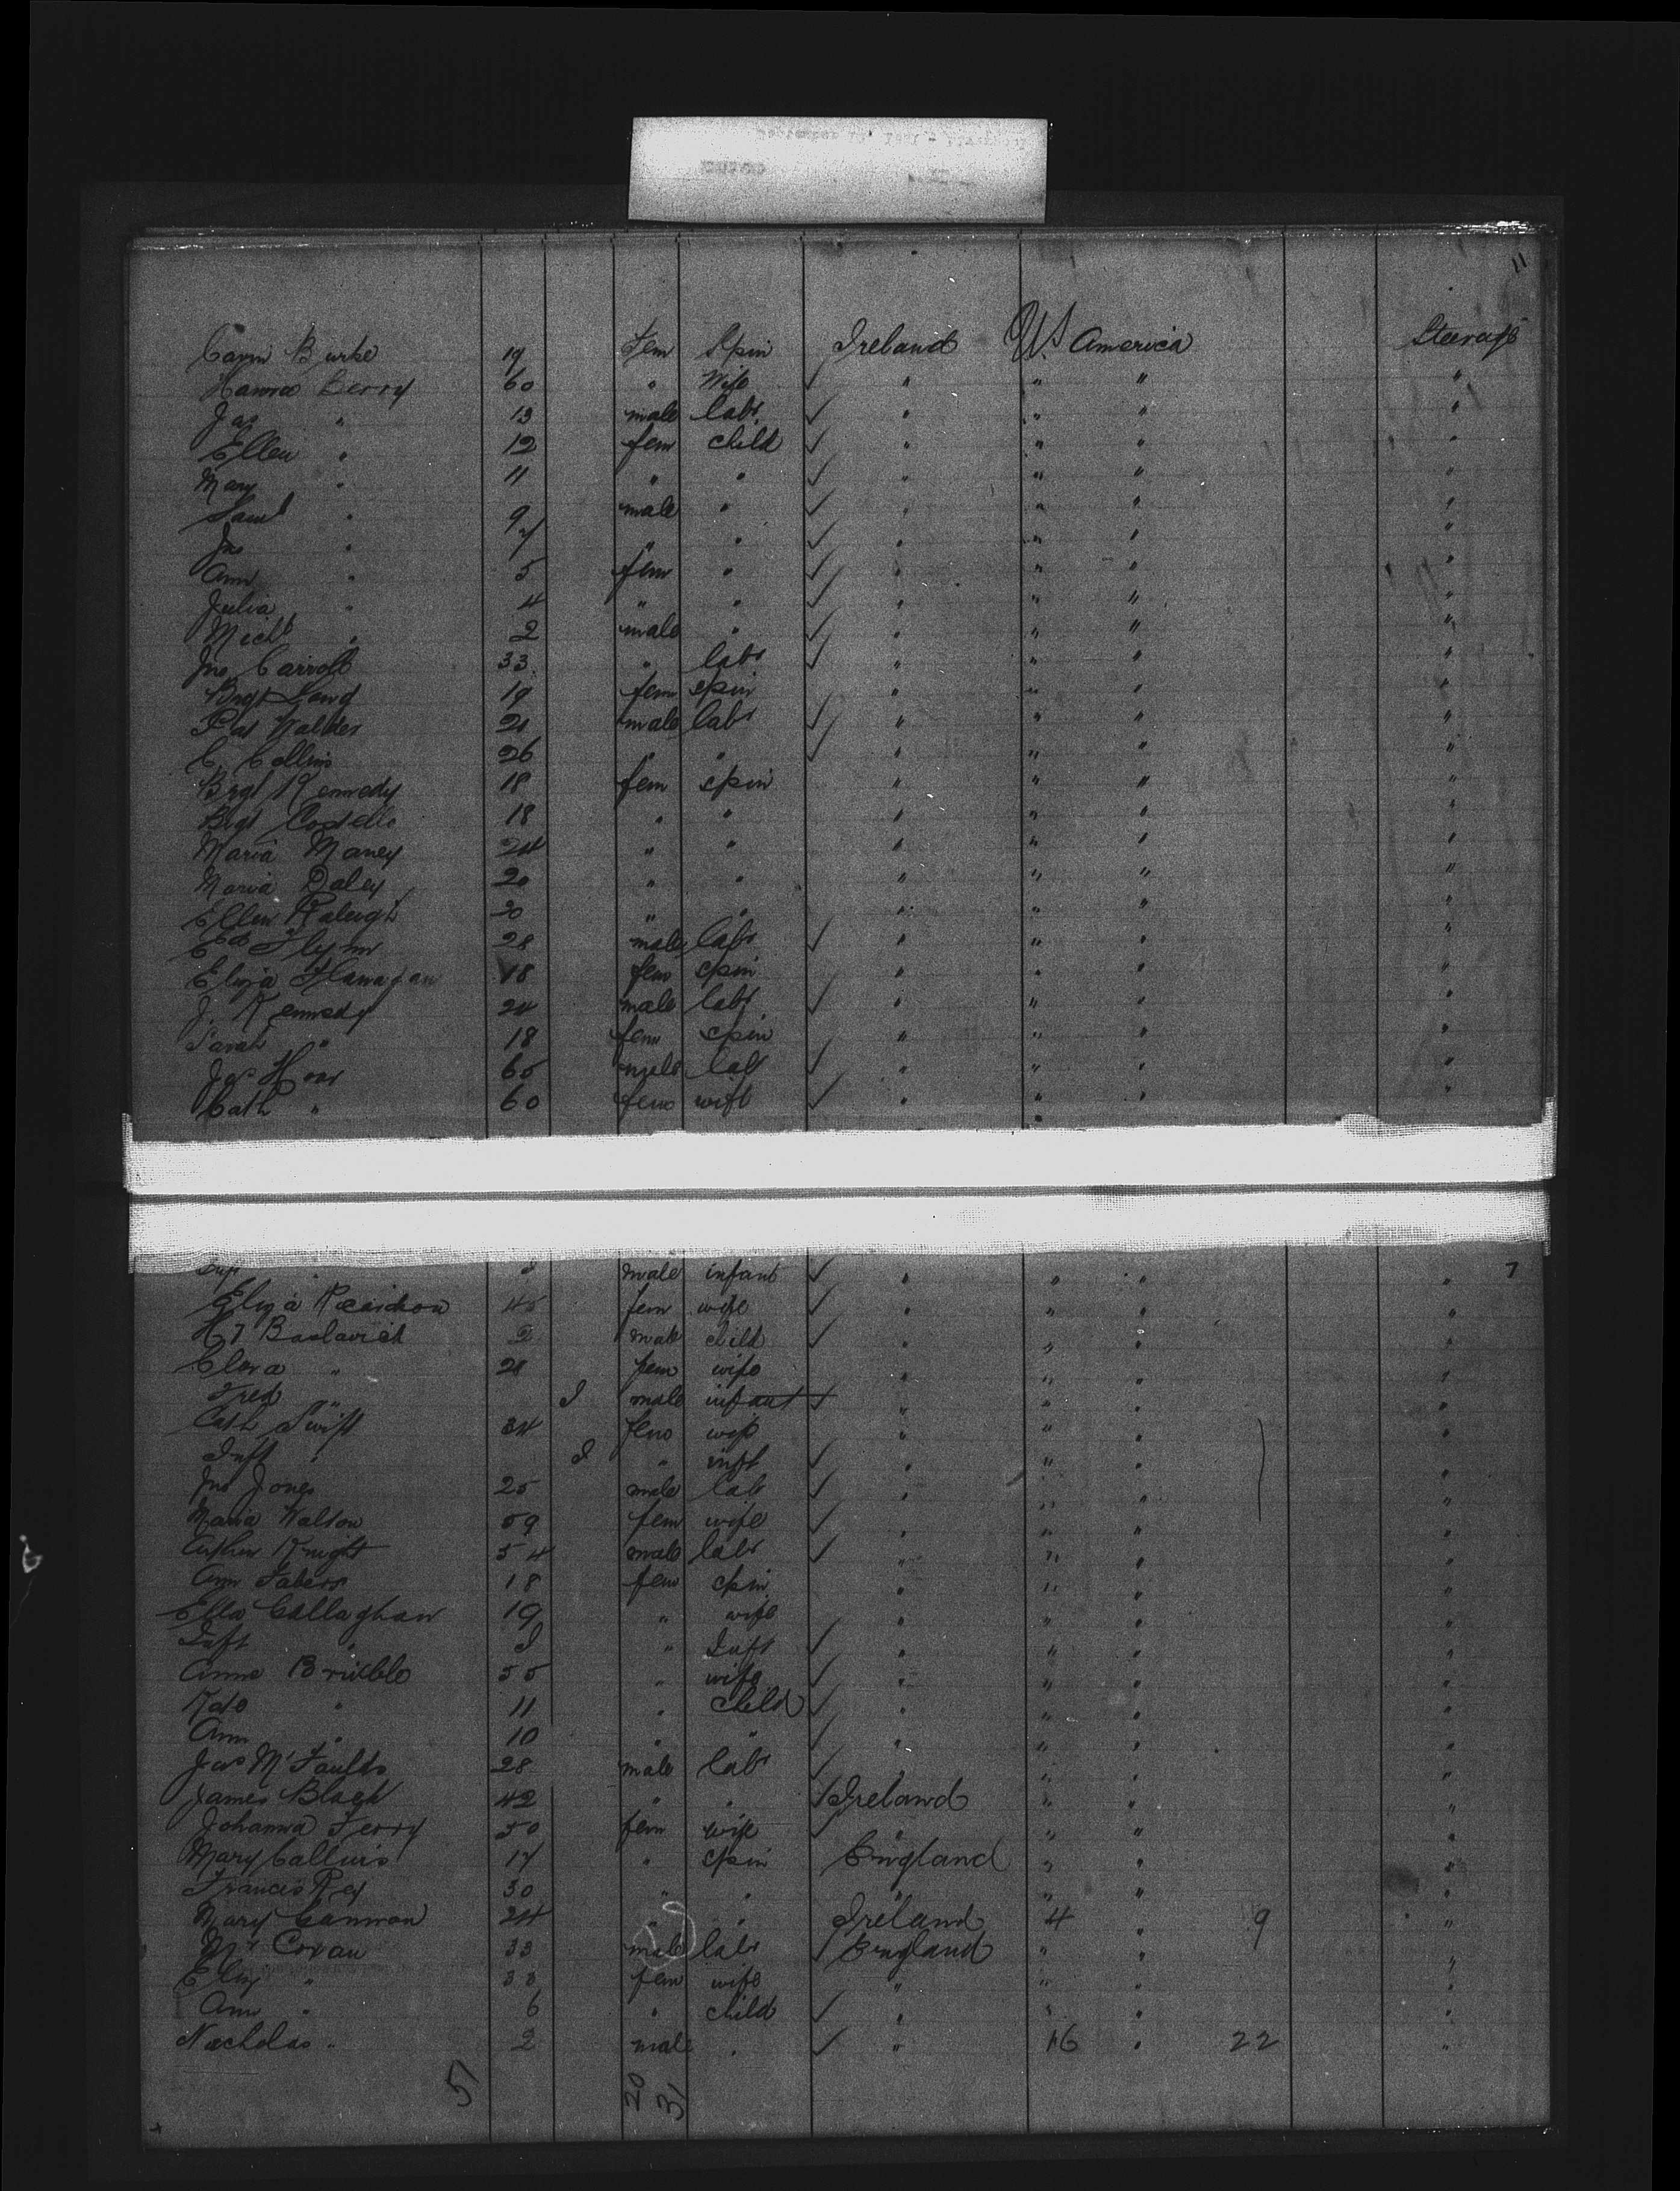 11
Burke 19 Fem Spin Ireland US America Steerage
Hanna Berry 60 " Wife " " " "
Jas " 13 male labr " " " "
Ellen " 12 fem child " " " "
Mary " 11 " " " " " "
Saml " 9 male " " " " "
Jno " 7 " " " " " "
Ann " 5 fem " " " " "
Julia " 4 " " " " " "
Michl " 2 male " " " " "
Jno Carroll 33 " labr " " " "
Brgt 19 fem spin " " " "
Pat 21 male labr " " " "
C. Collins 26 " " " " " "
Brgt Kennedy 18 fem spin " " " "
Brgt Costello 18 " " " " " "
Maria Maney 24 " " " " " "
Maria Daley 20 " " " " " "
Ellen Raleigh 20 " " " " " "
Ed Flynn 28 male labr " " " "
Eliza Flanagan 18 fem spin " " " "
J. Kennedy 24 male labr " " " "
Sarah " 18 fem spin " " " "
Jas Hoar 65 male labr " " " "
Cath " 60 fem wife " " " "
male infant " " " " 7
Eliza 45 fem wife " " " "
2 male child " " " "
Clara " 28 fem wife " " " "
Fred " I male infant " " " "
Cath Swift 34 fem wife " " " "
Inft " I " inft " " " "
Jno Jones 25 male labr " " " "
Maria Walton 59 fem wife " " " "
Arthur Knight 54 male labr " " " "
Ann 18 fem spin " " " "
Ella Callaghan 19 " wife " " " "
Inft " I " Inft " " " "
Anne 55 " wife " " " "
Kate " 11 " child " " " "
Ann " 10 " " " " " "
Jas McFaulds 28 male labr " " " "
James Black 42 " " Ireland " " "
Johanna Terry 50 fem wife " " " "
Mary Callins 17 " spin England " " "
Francis Rey 30 " " " " " "
Mary Cannon 24 " " Ireland 4 " 9 "
Covan 33 male labr England " " "
Eliz " 33 fem wife " " " "
Ann " 6 " child " " " "
Nacholas " 2 male " " 16 " 22 "
51 20 31